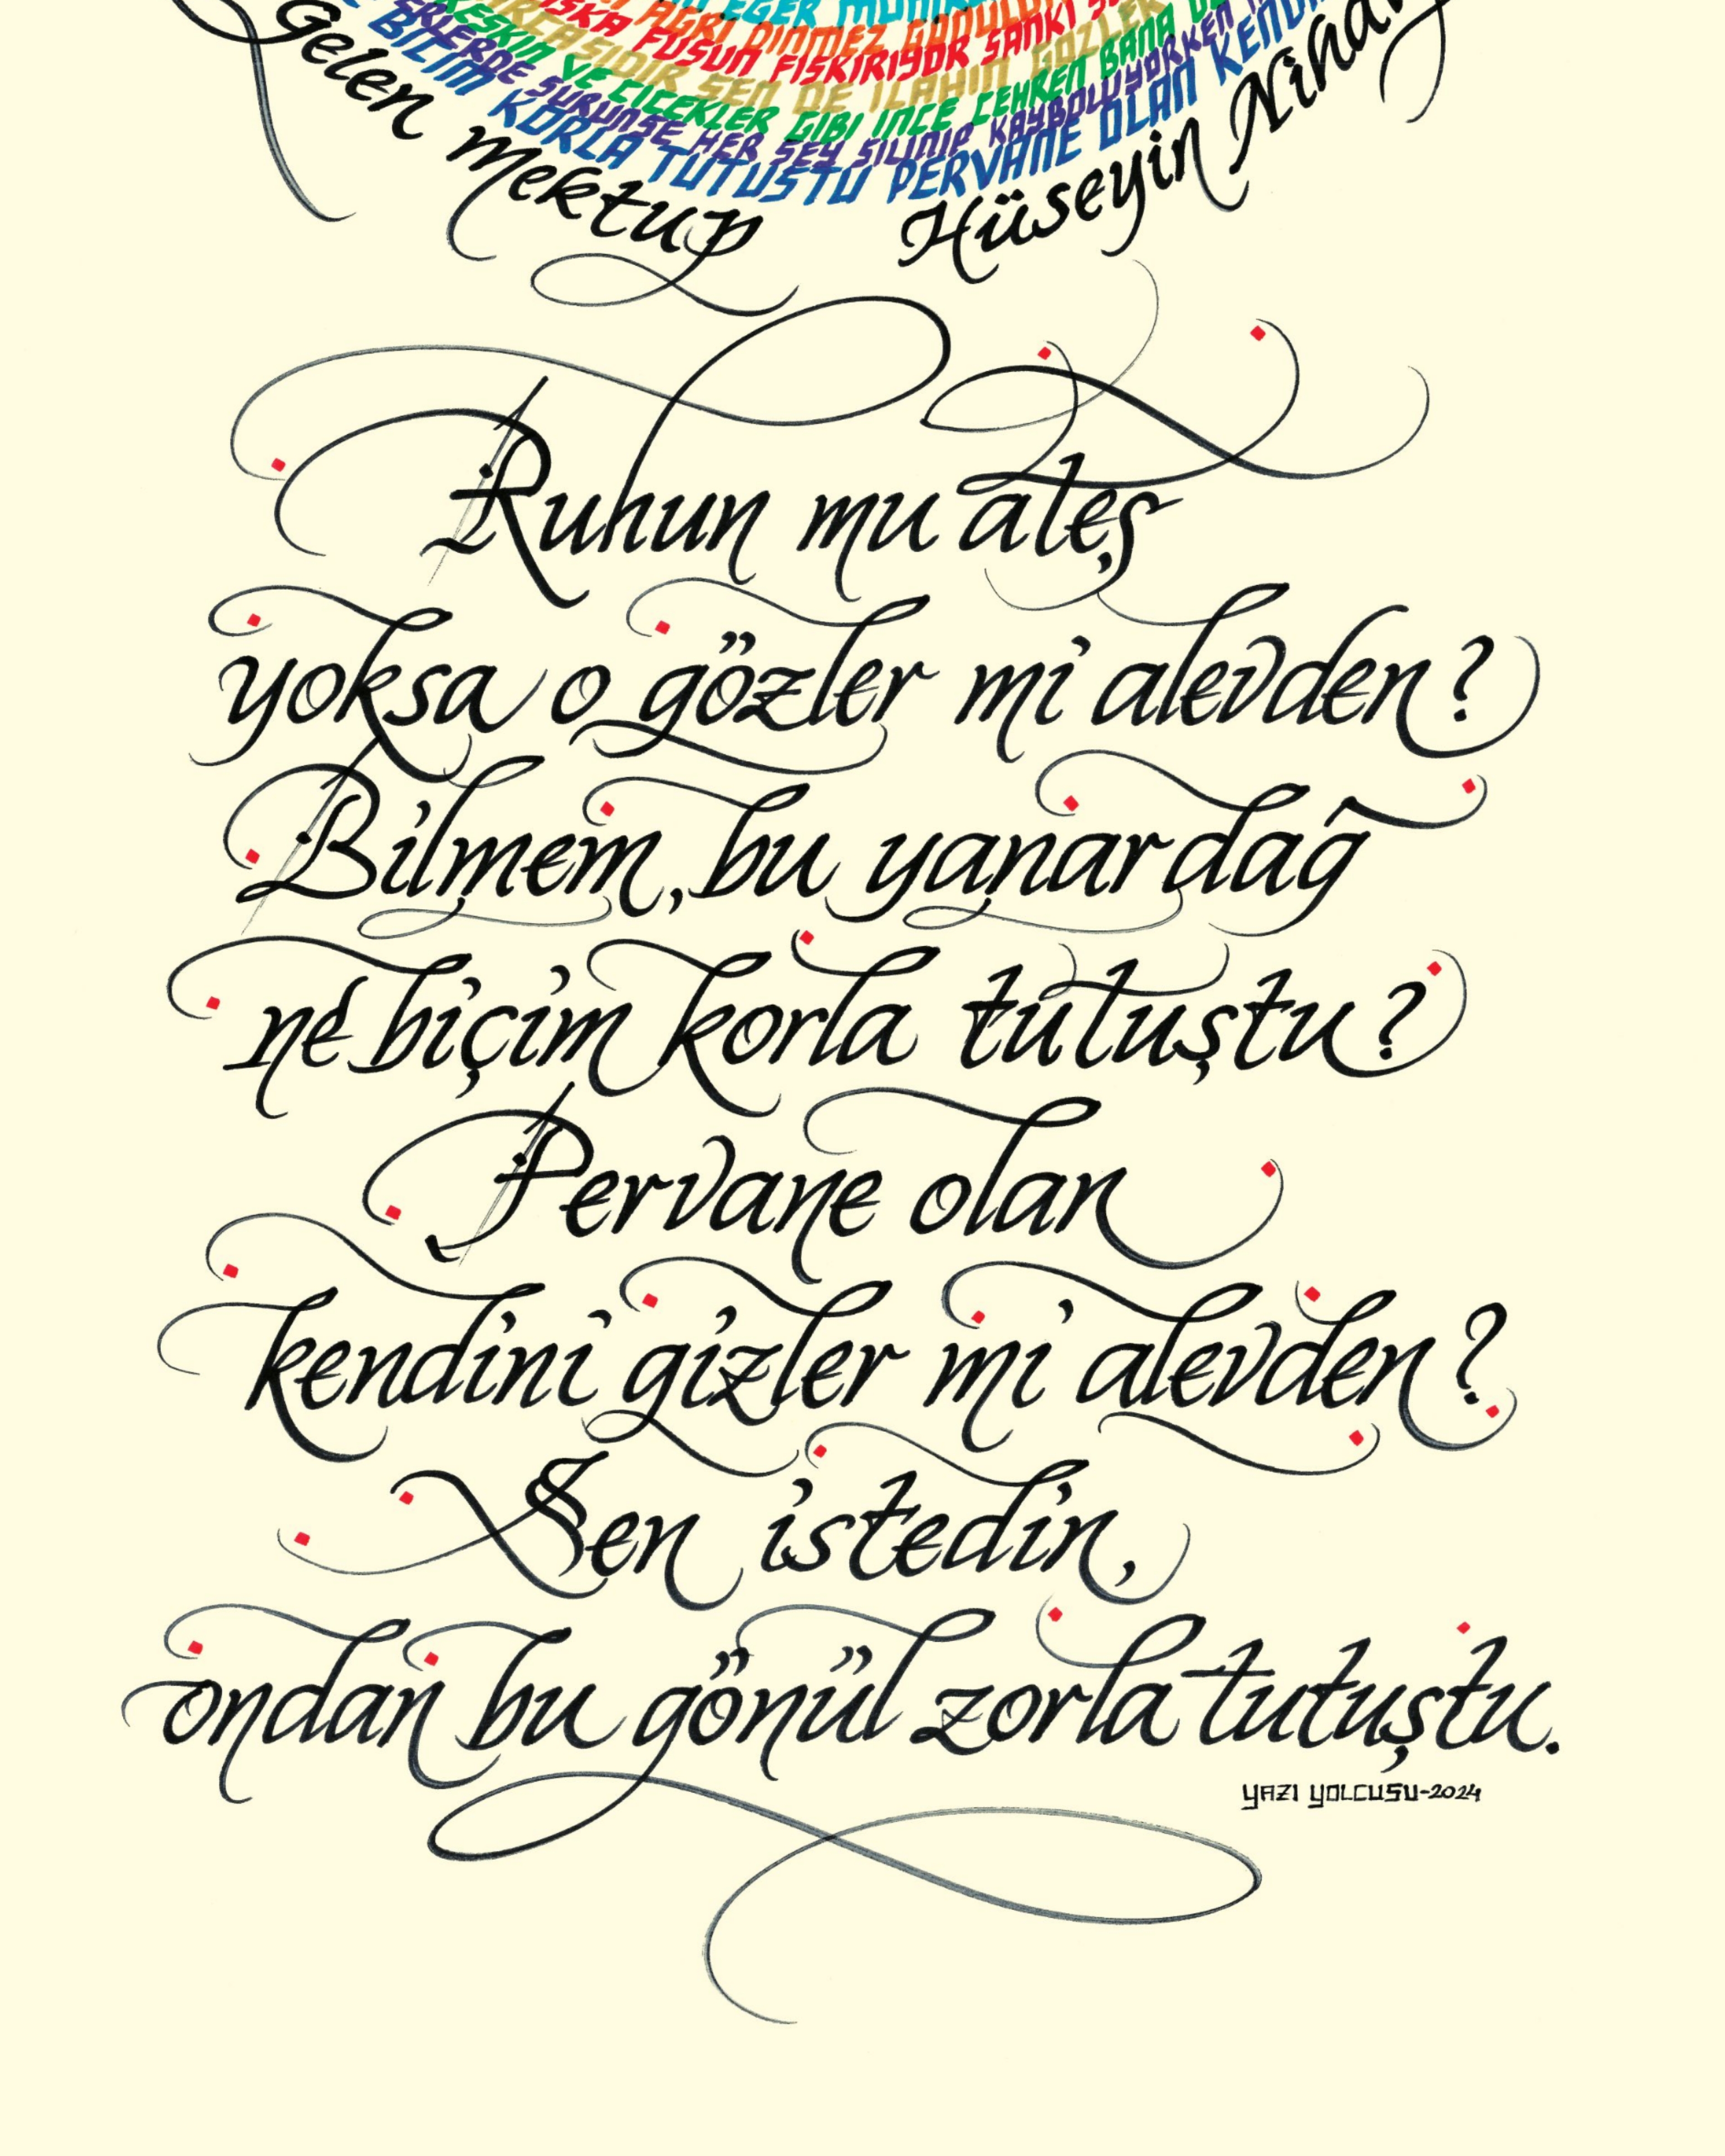 EĞER
AĞRI DİNMEZ
FÜSUN FIŞKIRIYOR SANKİ
SEN DE İLAHIN GÖZLER
KESKİN VE ÇİÇEKLER GİBİ İNCE ÇEHREN BANA
SÜRÜNSE HER ŞEY SİLİNİP KAYBOLUYORKEN
BİLİM KORLA TUTUŞTU PERVANE OLAN
Gelen Mektup
Hüseyin Nihal
Ruhun mu ateş
yoksa o gözler mi alevden?
Bilmem, bu yanardağ
ne biçim korla tutuştu?
Pervane olan
kendini gizler mi alevden?
Sen istedin,
ondan bu gönül zorla tutuştu.
YAZI YOLCUSU-2024